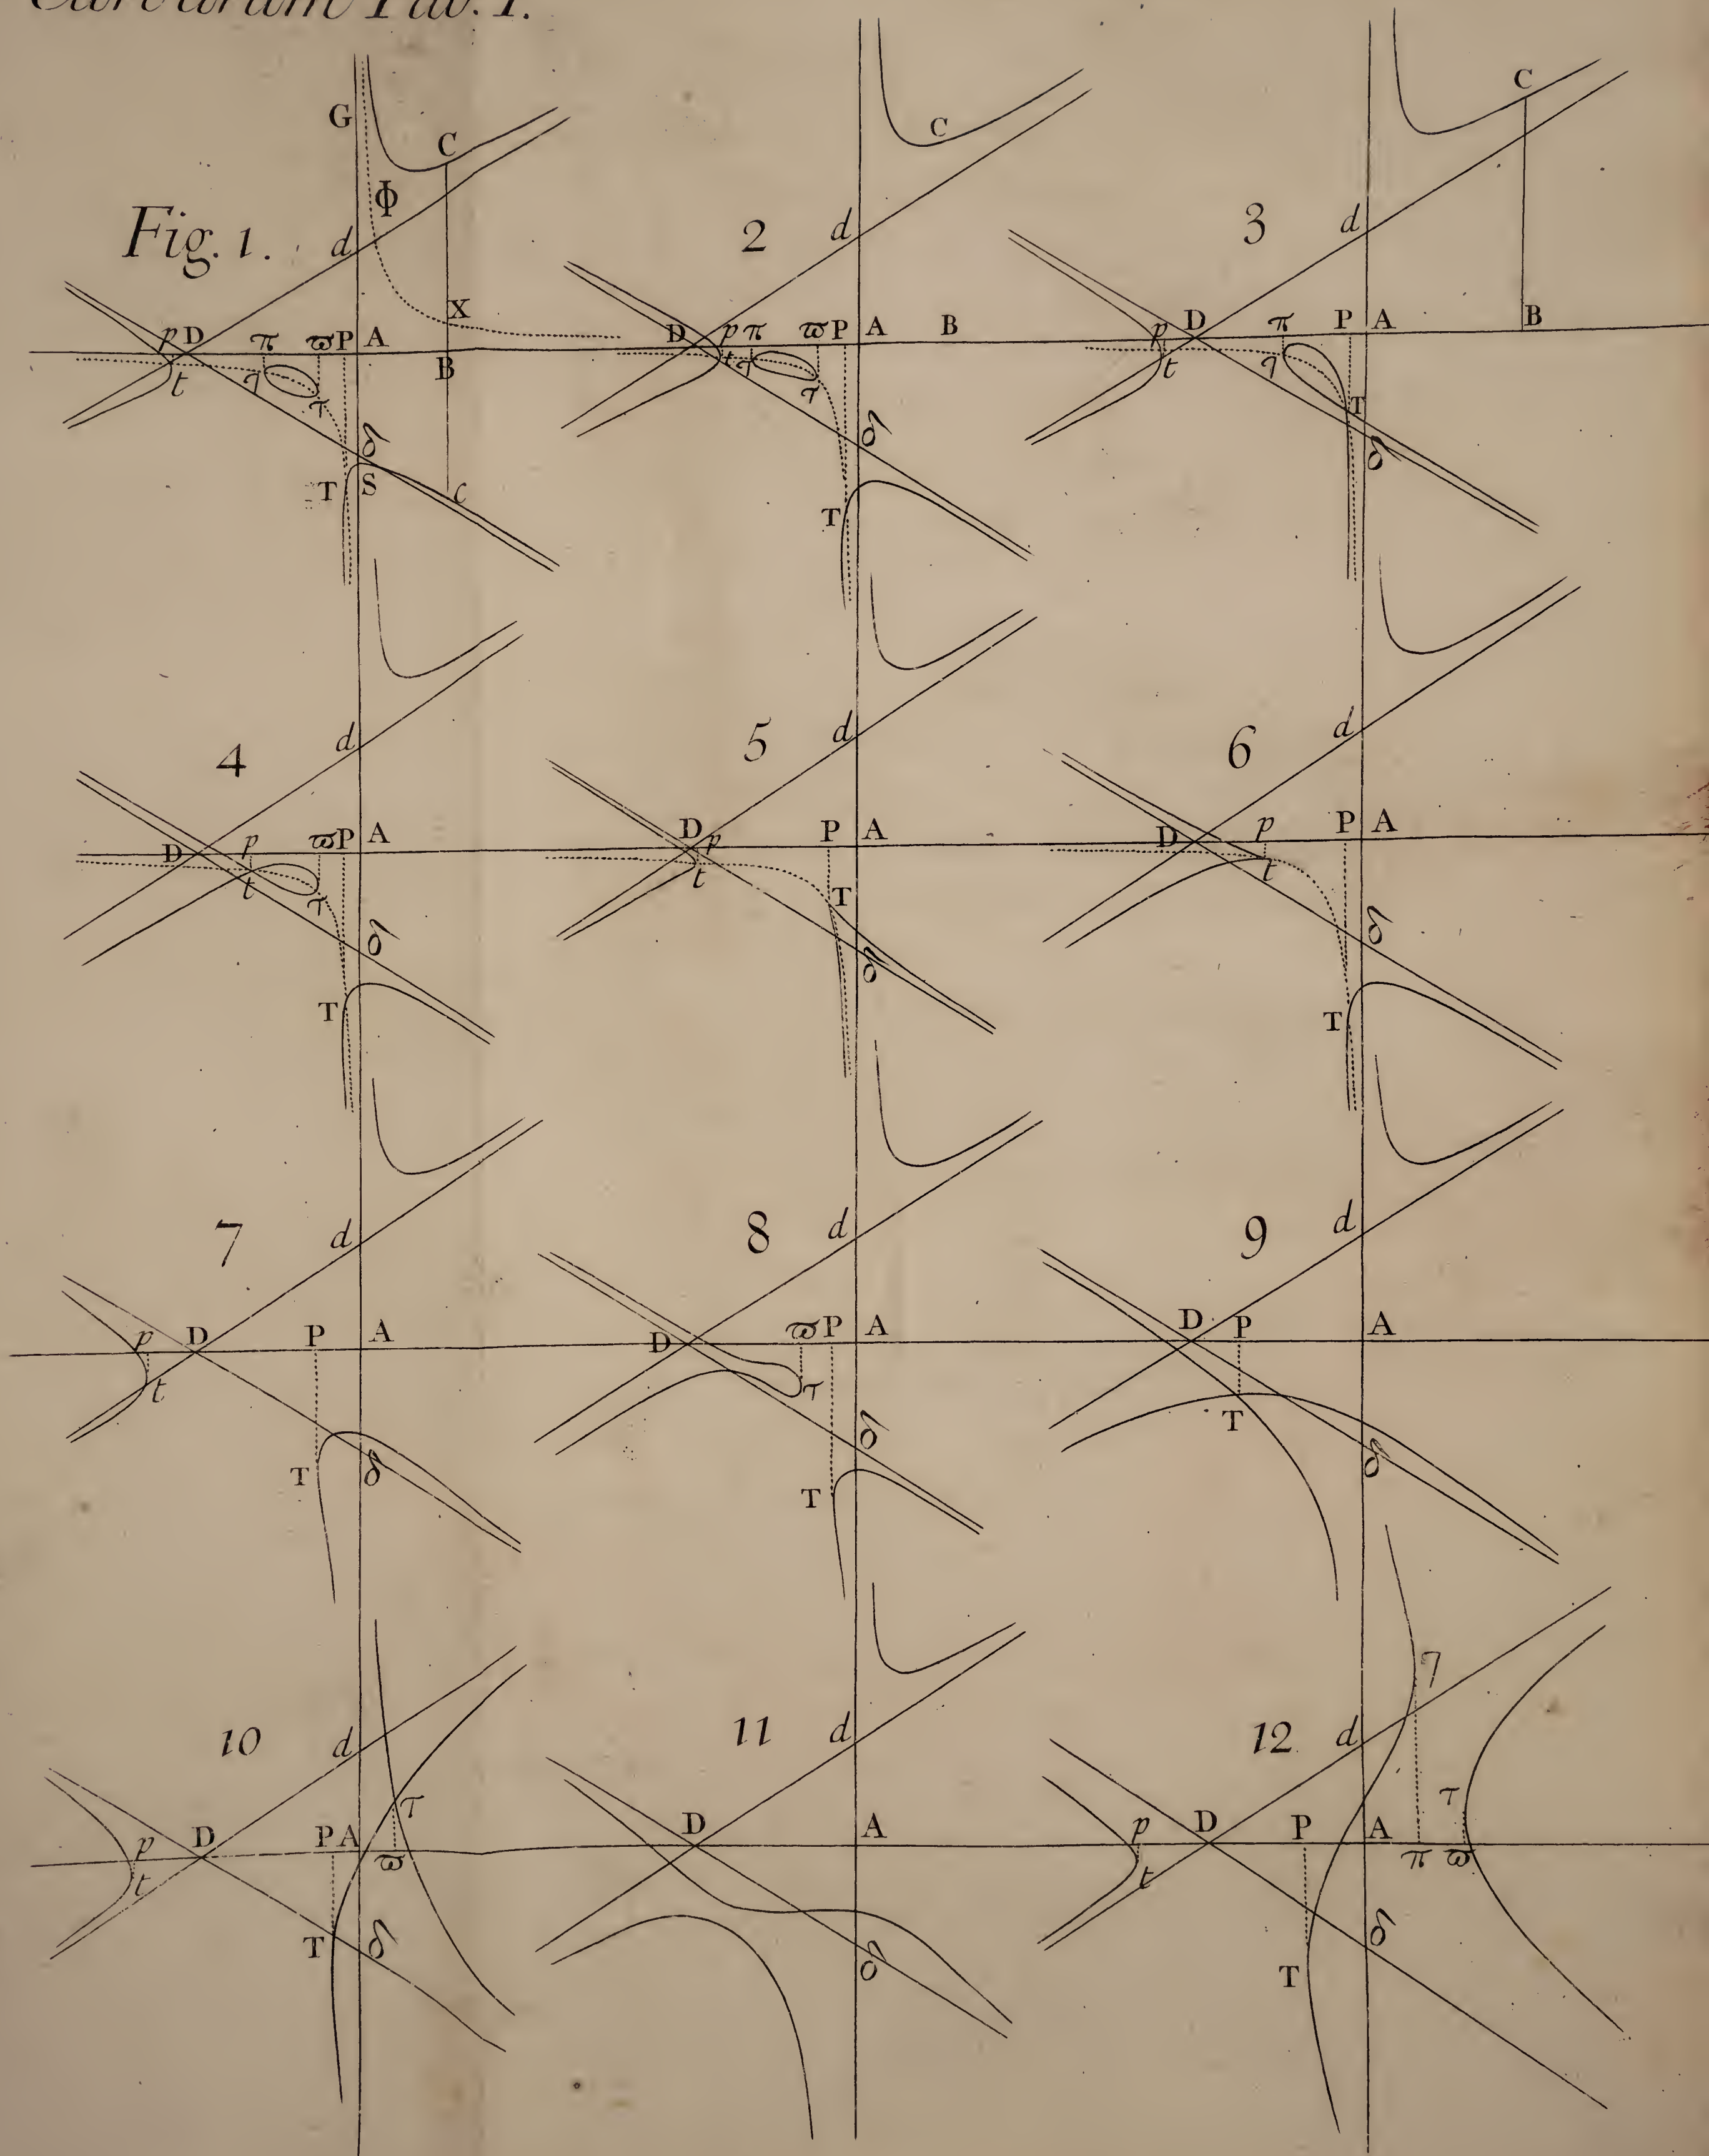 Curvarum Tab. I.
G C
Φ
Fig. 1. d
X
p D π ϖ P A
B
t τ τ
δ
T S c
2 C
d
D p π ϖ P A B
t τ τ
δ
T
3 C
d
p D π P A B
t τ T
δ
4 d
D p ϖ P A
t τ
δ
T
5 d
D p P A
t T
δ
6 d
D p P A
t
δ
T
7 d
p D P A
t
T δ
8 d
D ϖ P A
τ
δ
T
9 d
D P A
T
δ
10 d
τ
p D P A
ϖ
t
T δ
11 d
D A
δ
12 d
τ
p D P A
π ϖ
t
δ
T